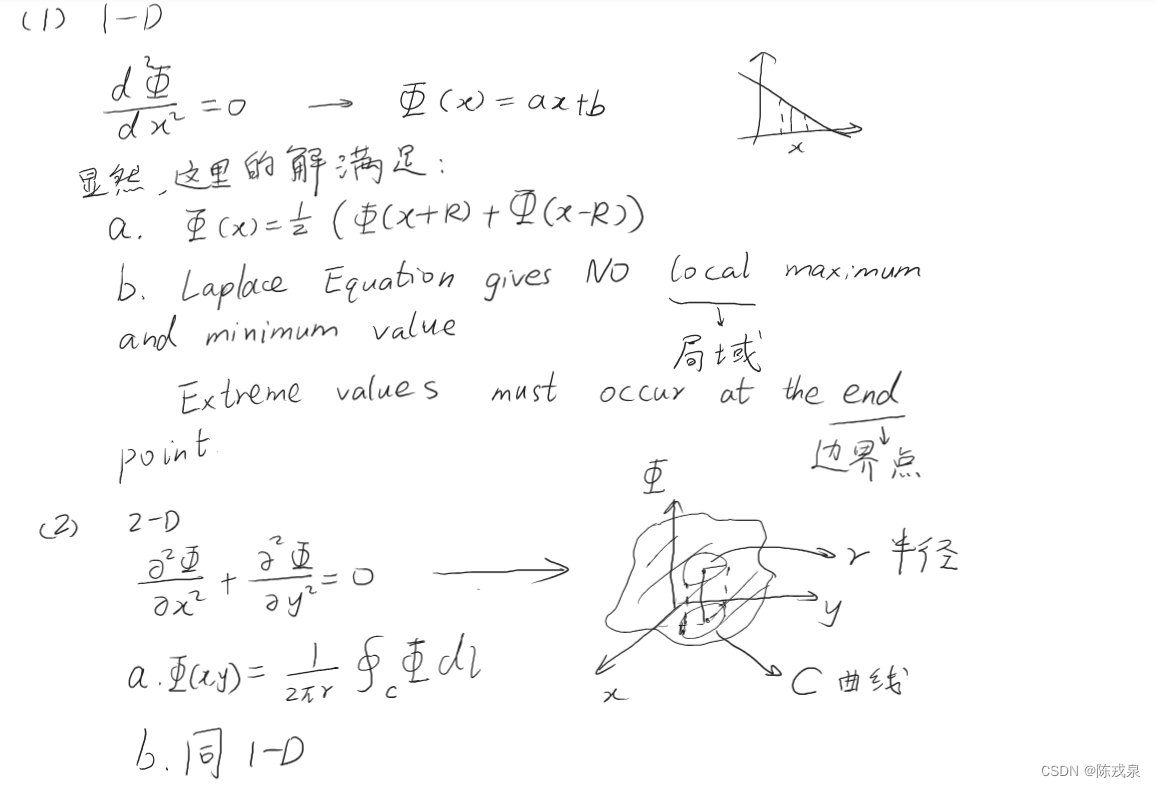 (1) 1-D
d²Φ/dx² = 0 → Φ(x) = ax+b
x
显然,这里的解满足:
a. Φ(x) = 1/2 (Φ(x+R) + Φ(x-R))
b. Laplace Equation gives NO local maximum
and minimum value
局域
Extreme values must occur at the end
point
边界点
(2) 2-D
∂²Φ/∂x² + ∂²Φ/∂y² = 0 →
Φ
r 半径
y
x
C 曲线
a. Φ(xy) = 1/2πr ∮c Φ dl
b. 同 1-D
CSDN @陈戎泉